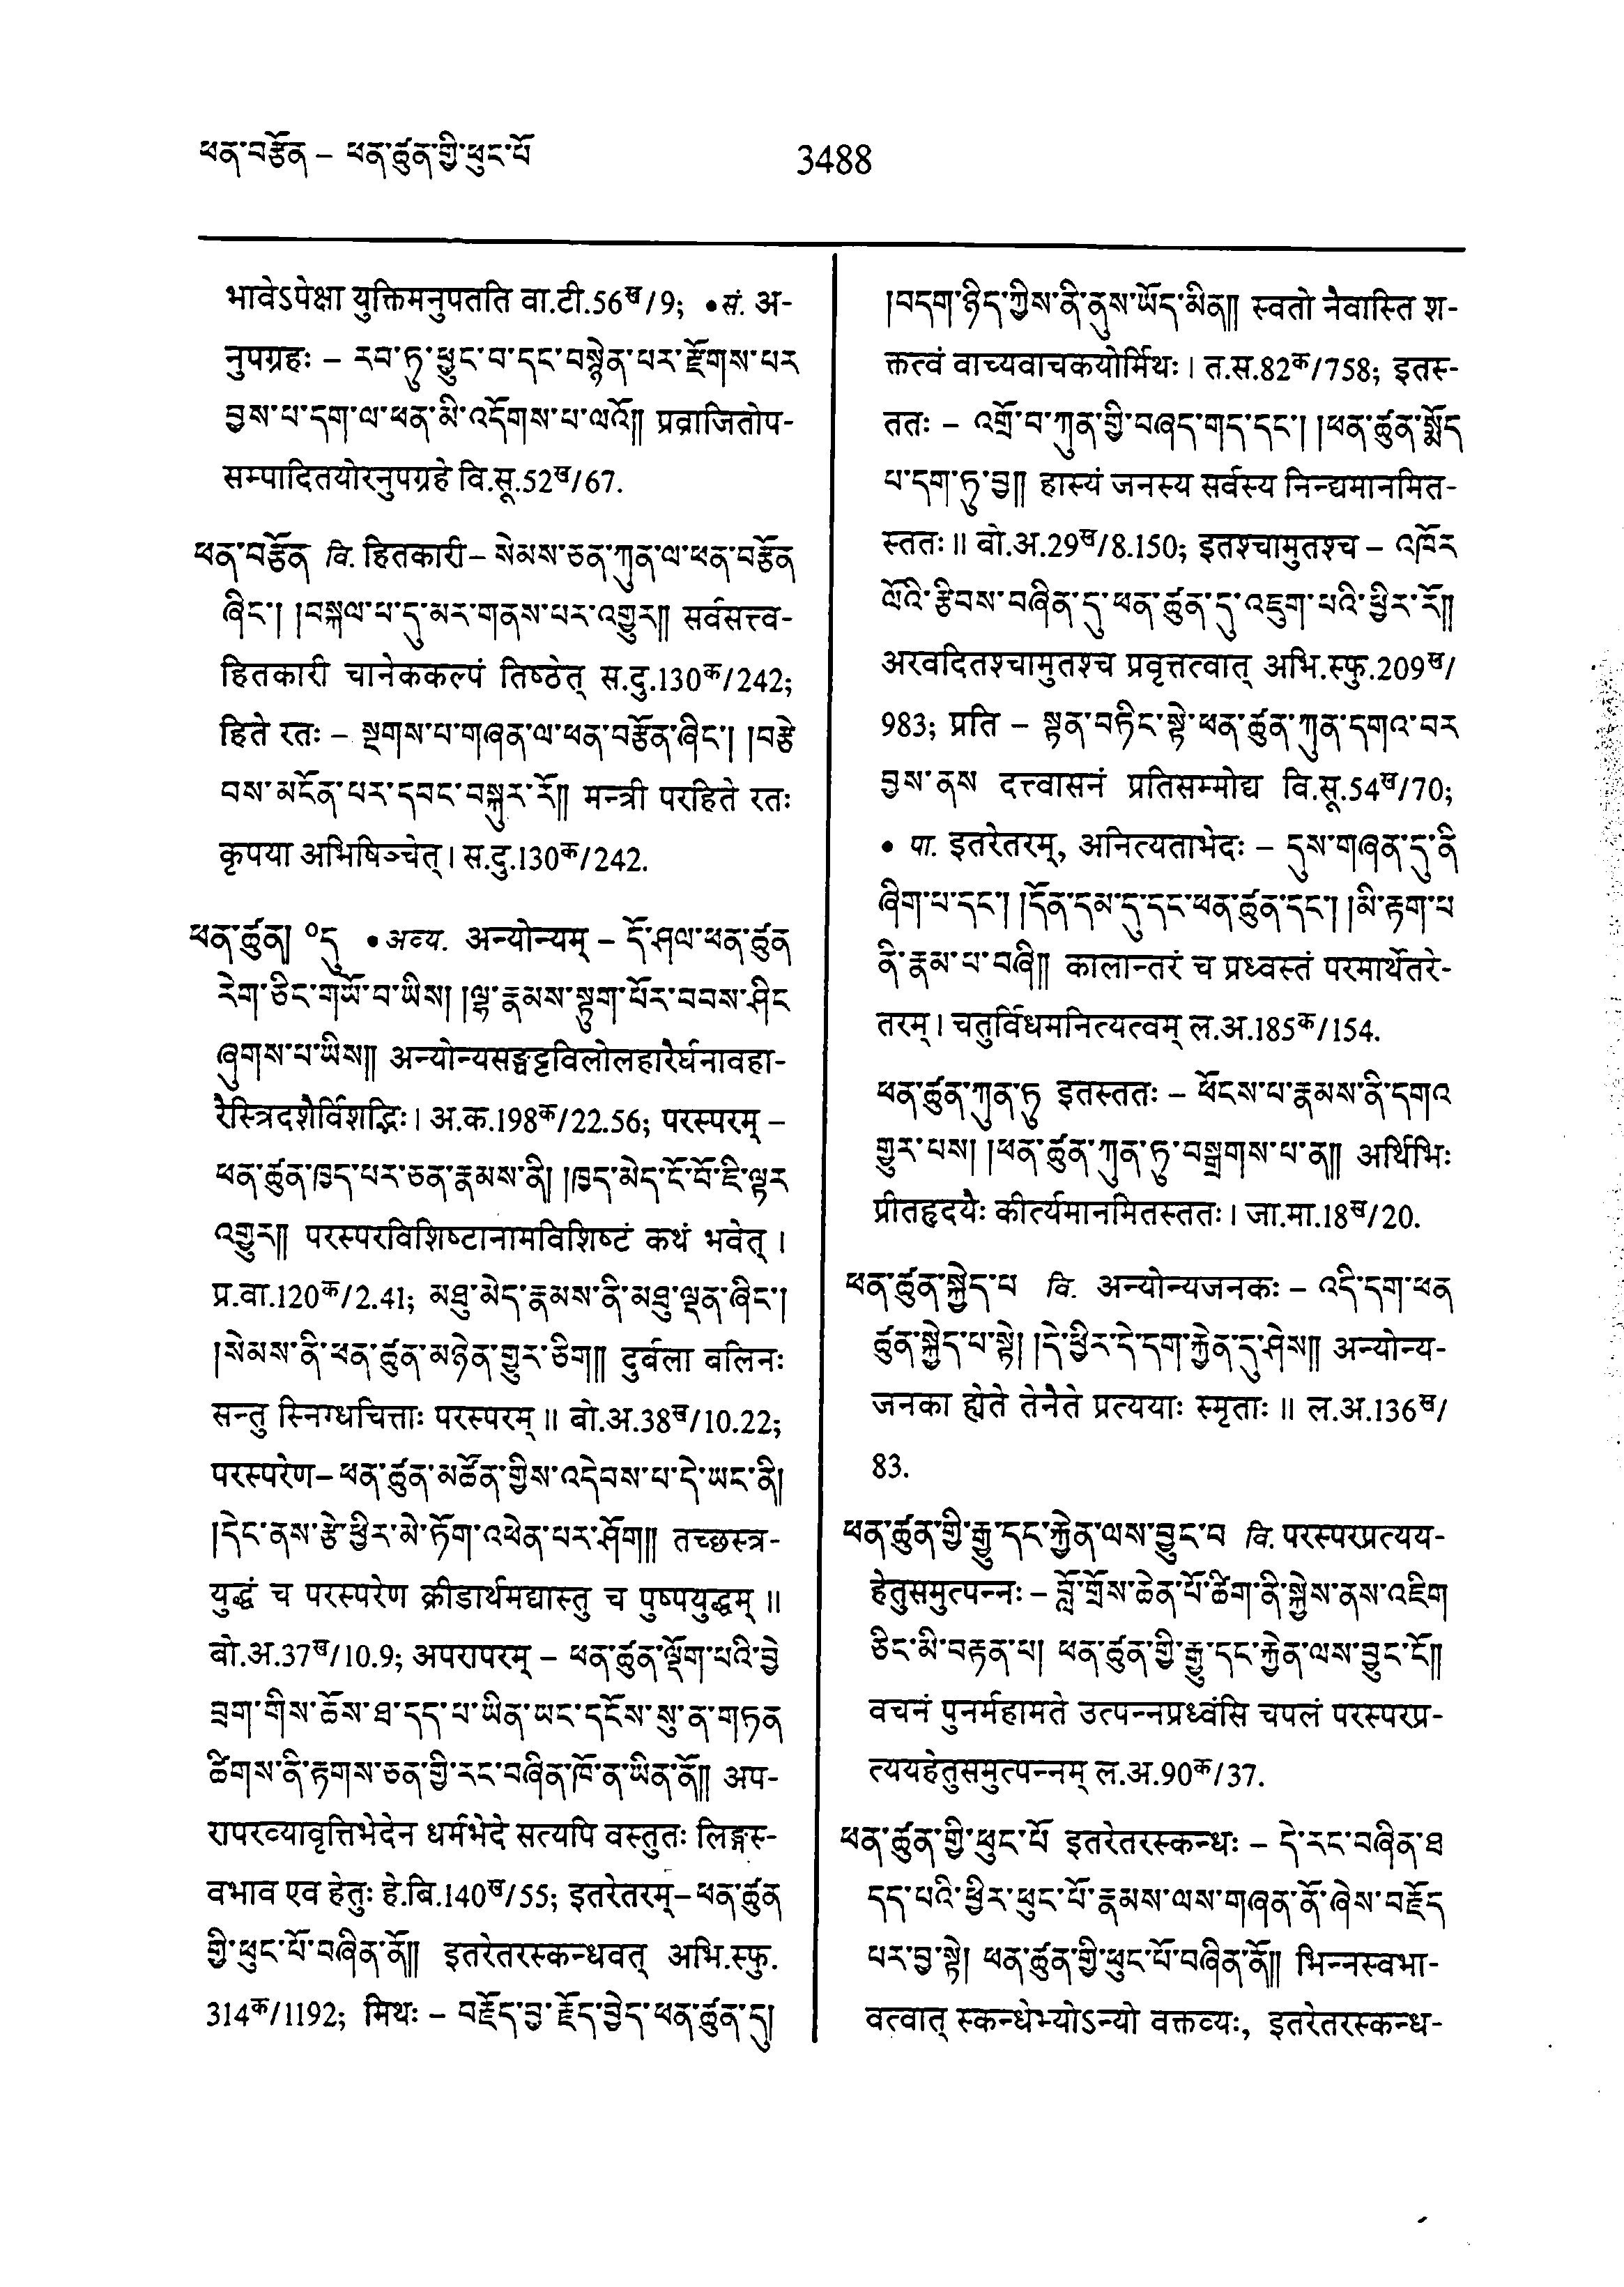 ཕན་བརྩོན – ཕན་ཚུན་གྱི་ཕུང་པོ
3488
भावेऽपेक्षा युक्तिमनुपतति वा.टी.56ख/9; •सं. अ-
नुपग्रहः – རབ་ཏུ་ཕྱུང་བ་དང་བསྙེན་པར་རྫོགས་པར
བྱས་པ་དག་ལ་ཕན་མི་འདོགས་པ་ལའོ།། प्रव्राजितोप-
सम्पादितयोरनुपग्रहे वि.सू.52ख/67.
ཕན་བརྩོན वि. हितकारी– སེམས་ཅན་ཀུན་ལ་ཕན་བརྩོན
ཞིང་། །བསྐལ་པ་དུ་མར་གནས་པར་འགྱུར།། सर्वसत्त्व-
हितकारी चानेककल्पं तिष्ठेत् स.दु.130क/242;
हिते रतः – སྔགས་པ་གཞན་ལ་ཕན་བརྩོན་ཞིང་། །བརྩེ
བས་མངོན་པར་དབང་བསྐུར་རོ།། मन्त्री परहिते रतः
कृपया अभिषिञ्चेत्। स.दु.130क/242.
ཕན་ཚུན། ༠དུ •अव्य. अन्योन्यम् – དོ་ཤལ་ཕན་ཚུན
རེག་ཅིང་གཡོ་བ་ཡིས། །ལྷ་རྣམས་སྟུག་པོར་བབས་ཤིང
ཞུགས་པ་ཡིས།། अन्योन्यसङ्घट्टविलोलहारैर्घनावहा-
रैस्त्रिदशैर्विशद्भिः। अ.क.198क/22.56; परस्परम् –
ཕན་ཚུན་ཁྱད་པར་ཅན་རྣམས་ནི། །ཁྱད་མེད་ངོ་བོ་ཇི་ལྟར
འགྱུར།། परस्परविशिष्टानामविशिष्टं कथं भवेत्।
प्र.वा.120क/2.41; མཐུ་མེད་རྣམས་ནི་མཐུ་ལྡན་ཞིང་།
།སེམས་ནི་ཕན་ཚུན་མཉེན་གྱུར་ཅིག།། दुर्बला बलिनः
सन्तु स्निग्धचित्ताः परस्परम्॥ बो.अ.38ख/10.22;
परस्परेण– ཕན་ཚུན་མཚོན་གྱིས་འདེབས་པ་དེ་ཡང་ནི།
།དེང་ནས་རྩེ་ཕྱིར་མེ་ཏོག་འཕེན་པར་ཤོག།། तच्छस्त्र-
युद्धं च परस्परेण क्रीडार्थमद्यास्तु च पुष्पयुद्धम्॥
बो.अ.37ख/10.9; अपरापरम् – ཕན་ཚུན་ལྡོག་པའི་བྱེ
བྲག་གིས་ཆོས་ཐ་དད་པ་ཡིན་ཡང་དངོས་སུ་ན་གཏན
ཚིགས་ནི་རྟགས་ཅན་གྱི་རང་བཞིན་ཁོ་ན་ཡིན་ནོ།། अप-
रापरव्यावृत्तिभेदेन धर्मभेदे सत्यपि वस्तुतः लिङ्गस्-
वभाव एव हेतुः हे.बि.140ख/55; इतरेतरम्– ཕན་ཚུན
གྱི་ཕུང་པོ་བཞིན་ནོ།། इतरेतरस्कन्धवत् अभि.स्फु.
314क/1192; मिथः – བརྗོད་བྱ་རྗོད་བྱེད་ཕན་ཚུན་དུ།
།བདག་ཉིད་ཀྱིས་ནི་ནུས་ཡོད་མིན།། स्वतो नैवास्ति श-
क्तत्वं वाच्यवाचकयोर्मिथः। त.स.82क/758; इतस्-
ततः – འགྲོ་བ་ཀུན་གྱི་བཞད་གད་དང་། །ཕན་ཚུན་སྨོད
པ་དག་ཏུ་བྱ།། हास्यं जनस्य सर्वस्य निन्द्यमानमित-
स्ततः॥ बो.अ.29ख/8.150; इतश्चामुतश्च – འཁོར
ལོའི་རྩིབས་བཞིན་དུ་ཕན་ཚུན་དུ་འཇུག་པའི་ཕྱིར་རོ།།
अरवदितश्चामुतश्च प्रवृत्तत्वात् अभि.स्फु.209ख/
983; प्रति – སྟན་བཏིང་སྟེ་ཕན་ཚུན་ཀུན་དགའ་བར
བྱས་ནས दत्त्वासनं प्रतिसम्मोद्य वि.सू.54ख/70;
• पा. इतरेतरम्, अनित्यताभेदः – དུས་གཞན་དུ་ནི
ཞིག་པ་དང་། །དོན་དམ་དུ་དང་ཕན་ཚུན་དང་། །མི་རྟག་པ
ནི་རྣམ་པ་བཞི།། कालान्तरं च प्रध्वस्तं परमार्थेतरे-
तरम्। चतुर्विधमनित्यत्वम् ल.अ.185क/154.
ཕན་ཚུན་ཀུན་ཏུ इतस्ततः – ཕོངས་པ་རྣམས་ནི་དགའ
གྱུར་པས། །ཕན་ཚུན་ཀུན་ཏུ་བསྒྲགས་པ་ན།། अर्थिभिः
प्रीतहृदयैः कीर्त्यमानमितस्ततः। जा.मा.18ख/20.
ཕན་ཚུན་སྐྱེད་པ वि. अन्योन्यजनकः – འདི་དག་ཕན
ཚུན་སྐྱེད་པ་སྟེ། །དེ་ཕྱིར་དེ་དག་རྐྱེན་དུ་ཤེས།། अन्योन्य-
जनका ह्येते तेनैते प्रत्ययाः स्मृताः॥ ल.अ.136ख/
83.
ཕན་ཚུན་གྱི་རྒྱུ་དང་རྐྱེན་ལས་བྱུང་བ वि. परस्परप्रत्यय-
हेतुसमुत्पन्नः – བློ་གྲོས་ཆེན་པོ་ཚིག་ནི་སྐྱེས་ནས་འཇིག
ཅིང་མི་བརྟན་པ། ཕན་ཚུན་གྱི་རྒྱུ་དང་རྐྱེན་ལས་བྱུང་ངོ།།
वचनं पुनर्महामते उत्पन्नप्रध्वंसि चपलं परस्परप्र-
त्ययहेतुसमुत्पन्नम् ल.अ.90क/37.
ཕན་ཚུན་གྱི་ཕུང་པོ इतरेतरस्कन्धः – དེ་རང་བཞིན་ཐ
དད་པའི་ཕྱིར་ཕུང་པོ་རྣམས་ལས་གཞན་ནོ་ཞེས་བརྗོད
པར་བྱ་སྟེ། ཕན་ཚུན་གྱི་ཕུང་པོ་བཞིན་ནོ།། भिन्नस्वभा-
वत्वात् स्कन्धेभ्योऽन्यो वक्तव्यः, इतरेतरस्कन्ध-